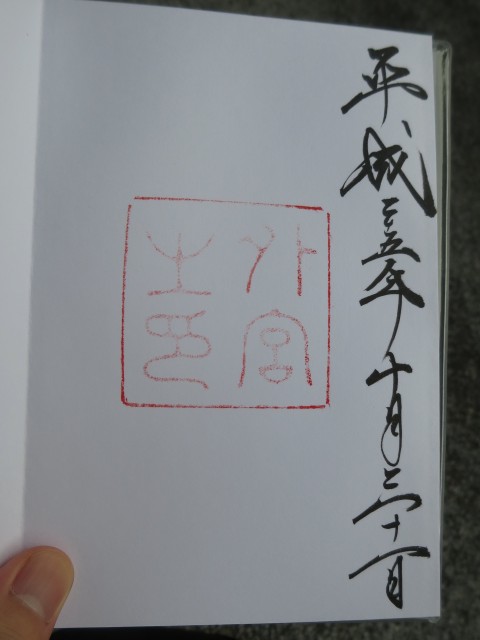 平成二五年十月三十一日
外宮
之印